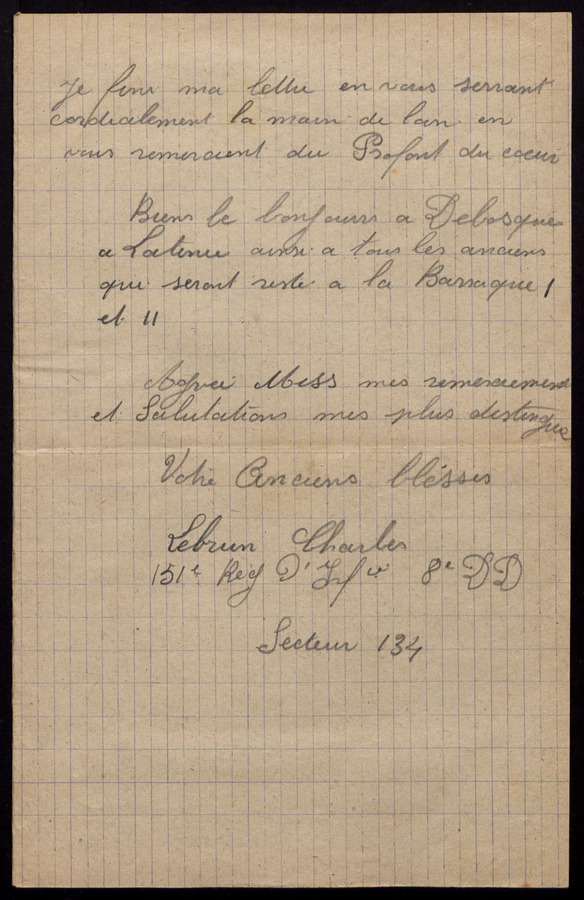 Je fini ma lettre en vous serrant
cordialement la main de loin en
vous remercient du Profont du coeur
Biens le bonjours a Debosque
a Latenu ainsi a tous les anciens
que seront reste a la Barraque I
et II
Agreé Mess mes remerciements
et Salutations mes plus distingue
Votre Anciens blésses
Lebrun Charles
151e Reg D'Infie 8e DD
Secteur 134